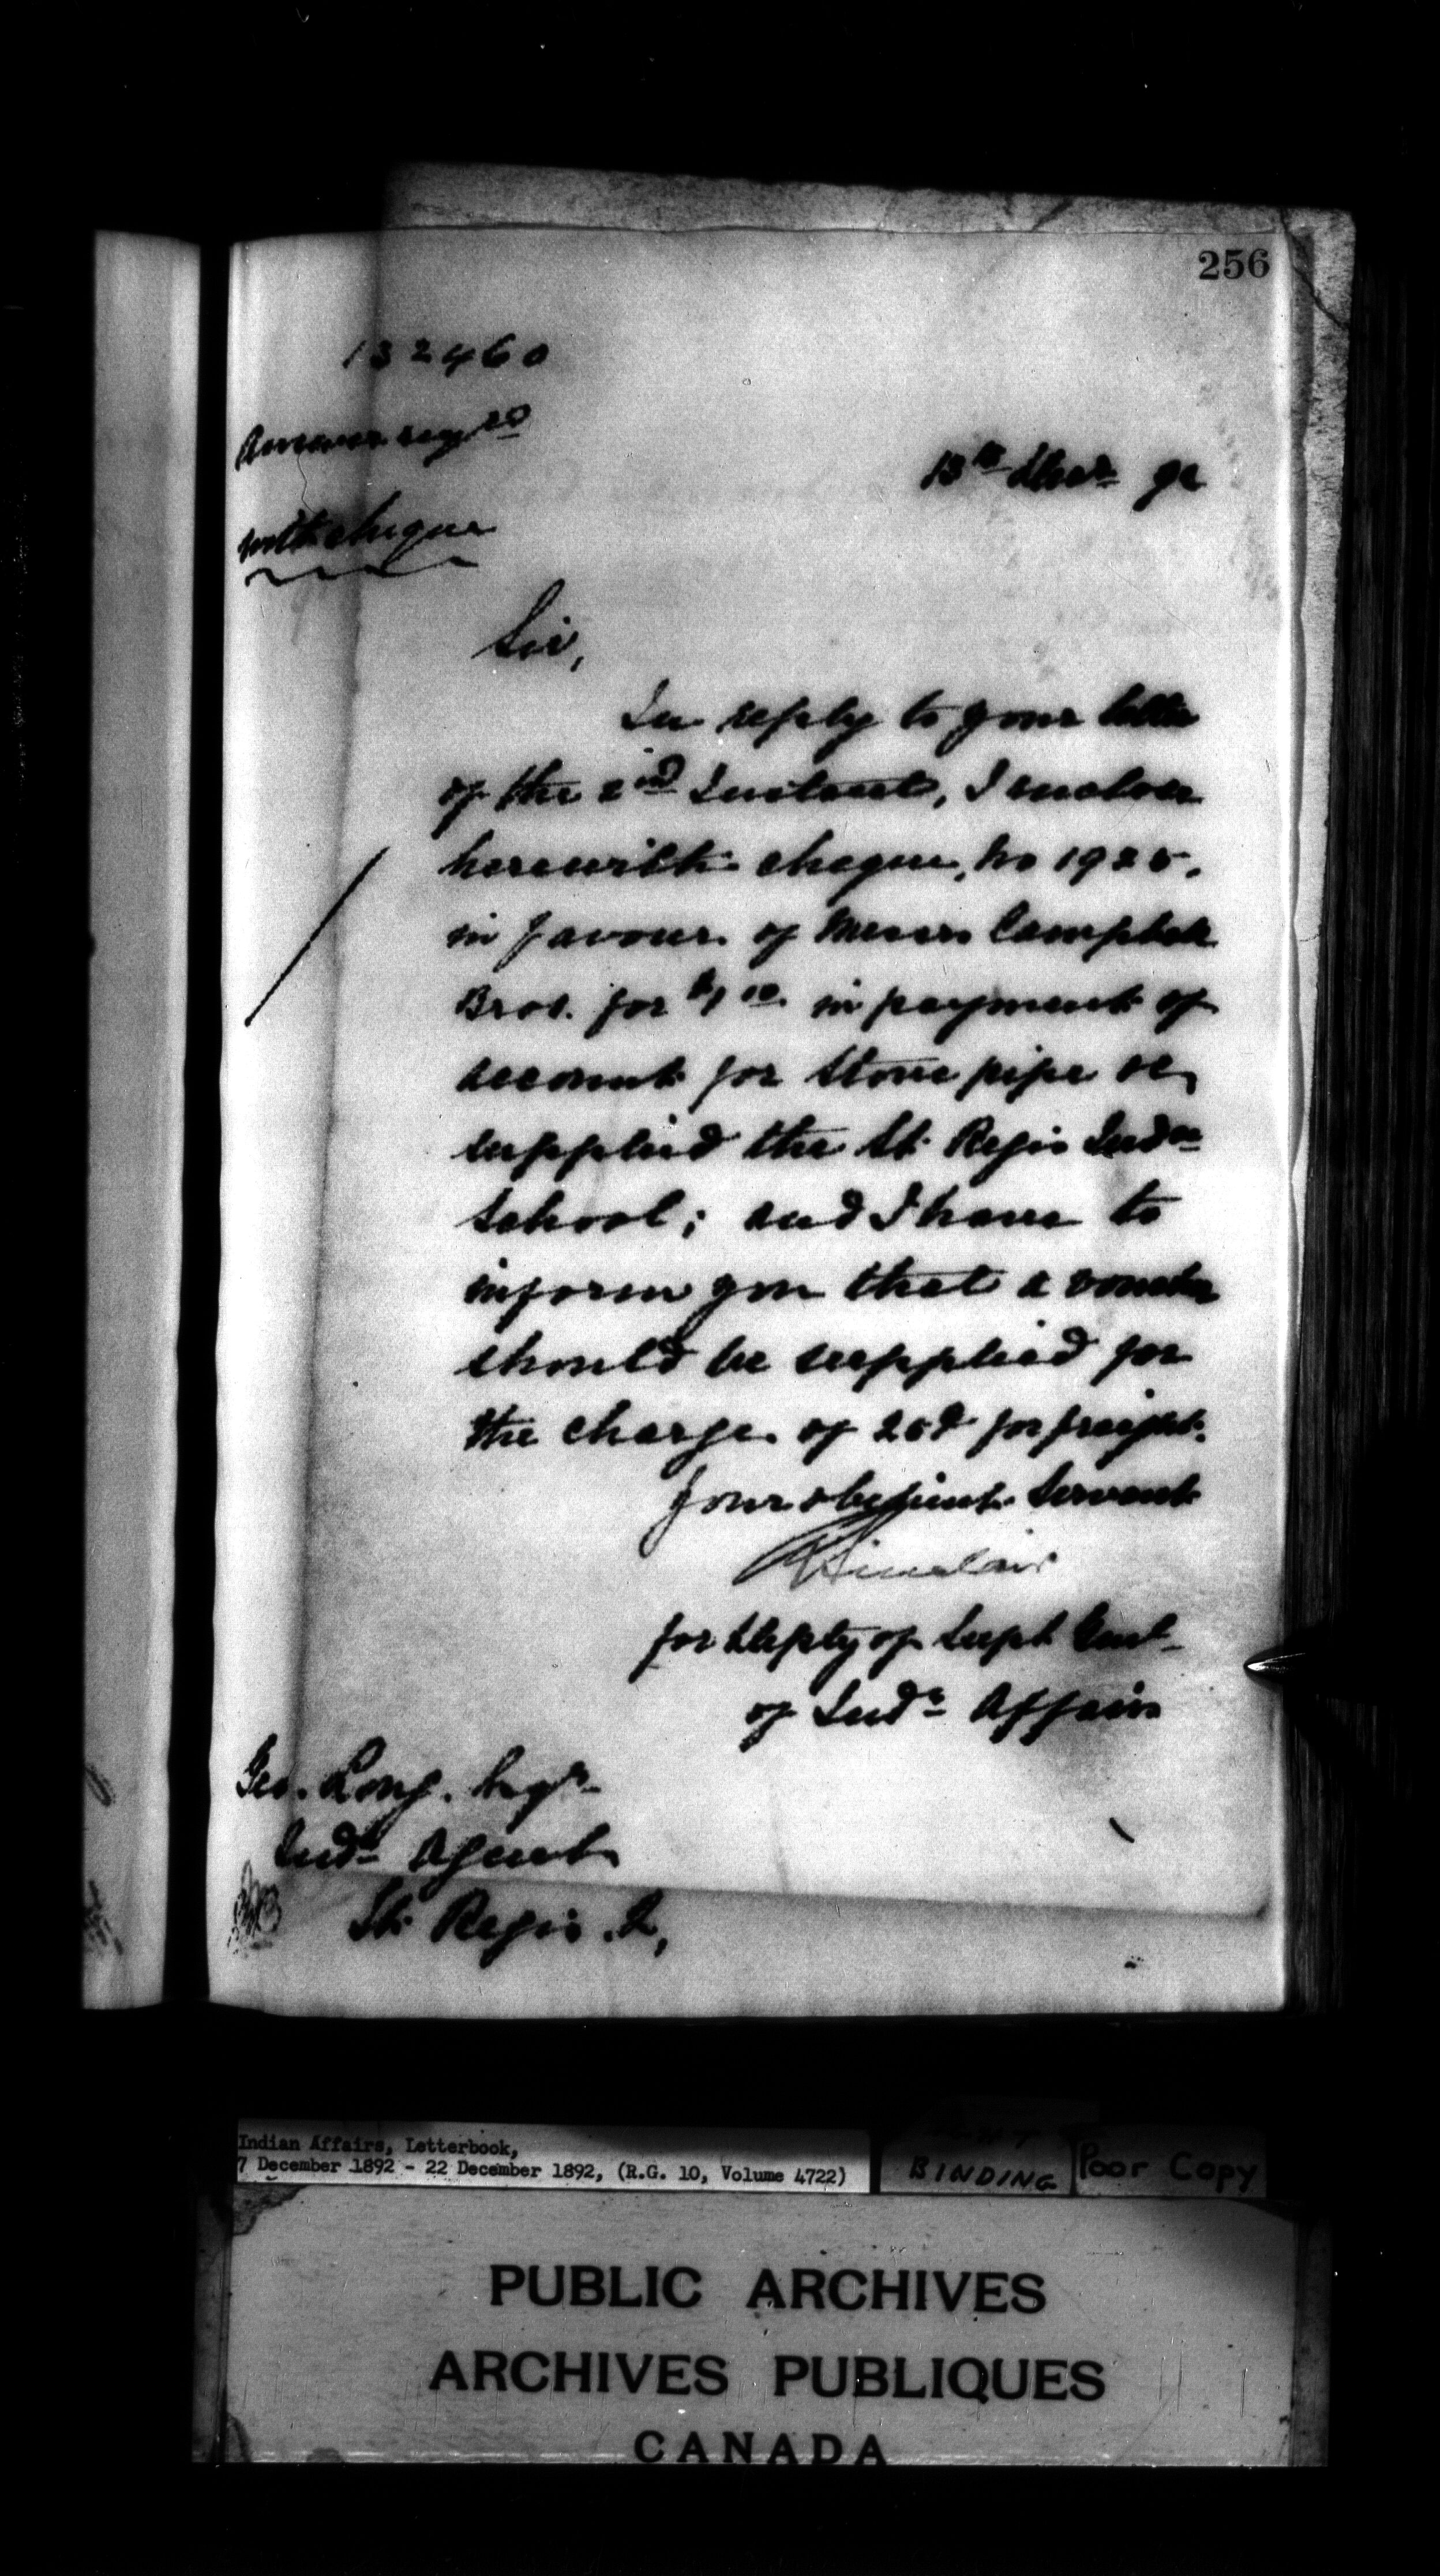 256
132460
Answer reqd
with cheque
13th Decr 92
Sir,
In reply to your letter
of the 2nd Instant, I enclose
herewith cheque, No 1925,
in favour of Messrs Campbell
Bros. for $1 in payment of
account for Stove pipe &c,
supplied the St. Regis Indn
School; and I have to
inform you that a voucher
should be supplied for
the charge of 25¢ for freight.
Your obedient Servant
Sinclair
for Depty of Supt Genl
of Indn Affairs
Geo. Long. Esqr
Indn Agent
St. Regis. Q,
Indian Affairs, Letterbook,
7 December 1892 - 22 December 1892, (R.G. 10, Volume 4722)
BINDING
Poor Copy
PUBLIC ARCHIVES
ARCHIVES PUBLIQUES
CANADA